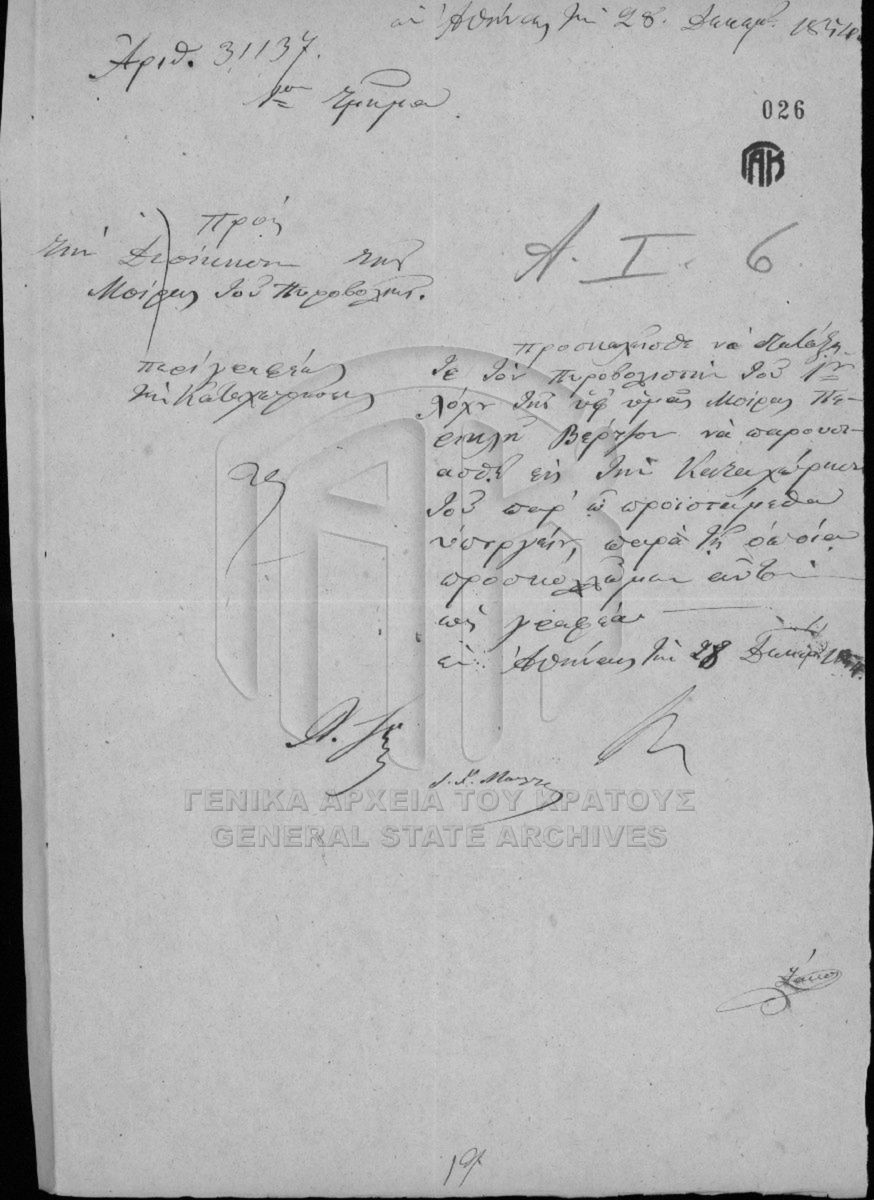 ἐν Ἀθήναις τῇ 28. Δεκεμβ. 1854
Ἀριθ. 31137.
1ον τμῆμα
026
ΓΑΚ
Πρὸς
τὴν Διοίκησιν τῆς
Μοίρας τοῦ Πυροβολικοῦ.
Α. Ι. 6
περὶ γραφέως
τὴν Καταχώρησιν
προσκαλεῖσθε νὰ διατάξη
τε τὸν πυροβολιστὴν τοῦ 1ου
λόχου τῆς ὑφ' ὑμᾶς Μοίρας Πε-
ρικλῆ νὰ παρουσι-
ασθῇ εἰς τὴν
τοῦ παρ' ᾧ προϊστάμεθα
ὑπουργείου, παρὰ τῇ ὁποίᾳ
προσκολλῶμεν αὐτὸν
ὡς γραφέα
ἐν Ἀθήναις τῇ 28 Δεκεμβ. 1854.
ΓΕΝΙΚΑ ΑΡΧΕΙΑ ΤΟΥ ΚΡΑΤΟΥΣ
GENERAL STATE ARCHIVES